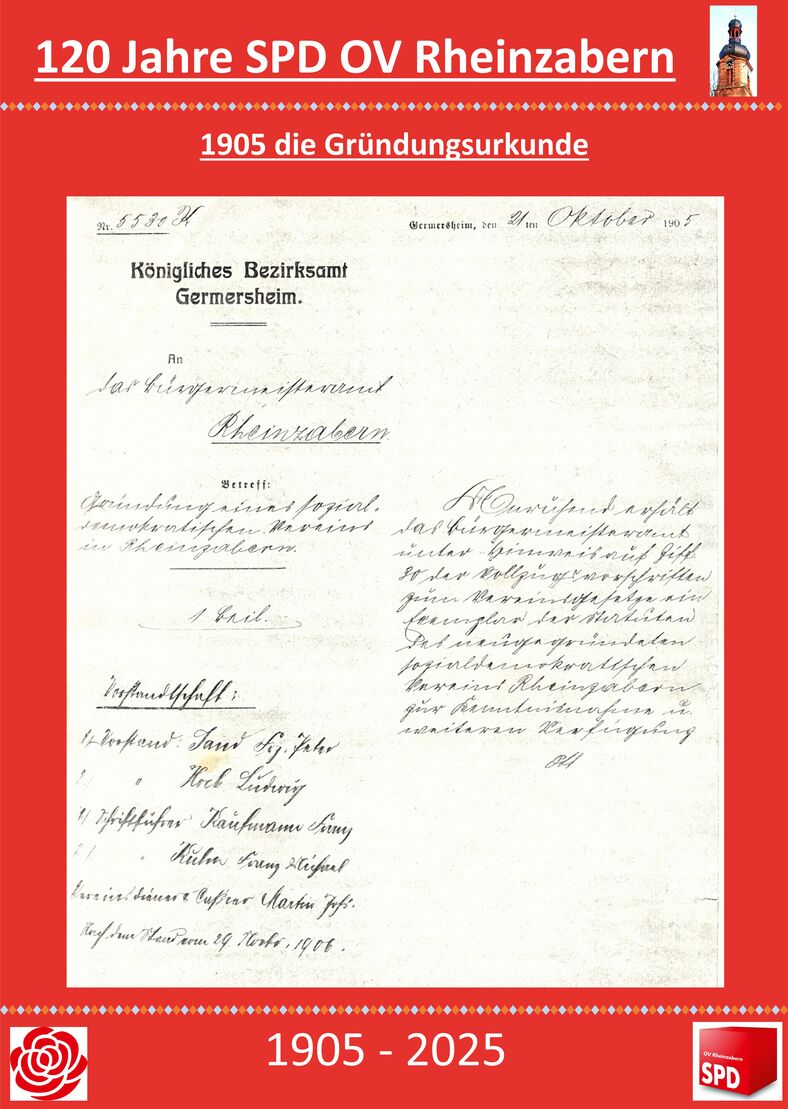 120 Jahre SPD OV Rheinzabern
1905 die Gründungsurkunde
Nr. 5530
Germersheim, den 21ten Oktober 1905
Königliches Bezirksamt
Germersheim.
An
das Bürgermeisteramt
Rheinzabern.
Betreff:
Gründung eines sozial-
demokratischen Vereins
in Rheinzabern.
1 Beil.
Anruhend erhält
das Bürgermeisteramt
unter Hinweis auf Ziff.
20 der Vollzugsvorschriften
zum Vereinsgesetze ein
Exemplar der Statuten
des neugegründeten
sozialdemokratischen
Vereins Rheinzabern
zur Kenntnisnahme u.
weiteren Verfügung
Vorstandtschaft:
1/ Vorstand: Sand Frz. Peter
2/ " Ludwig
1/ Schriftführer Kaufmann Franz
2/ " Kuhn Franz Michael
Vereinsdiener & Cassier Martin Johs.
Nach dem Stand vom 29 Novbr. 1906.
1905 - 2025
OV Rheinzabern
SPD